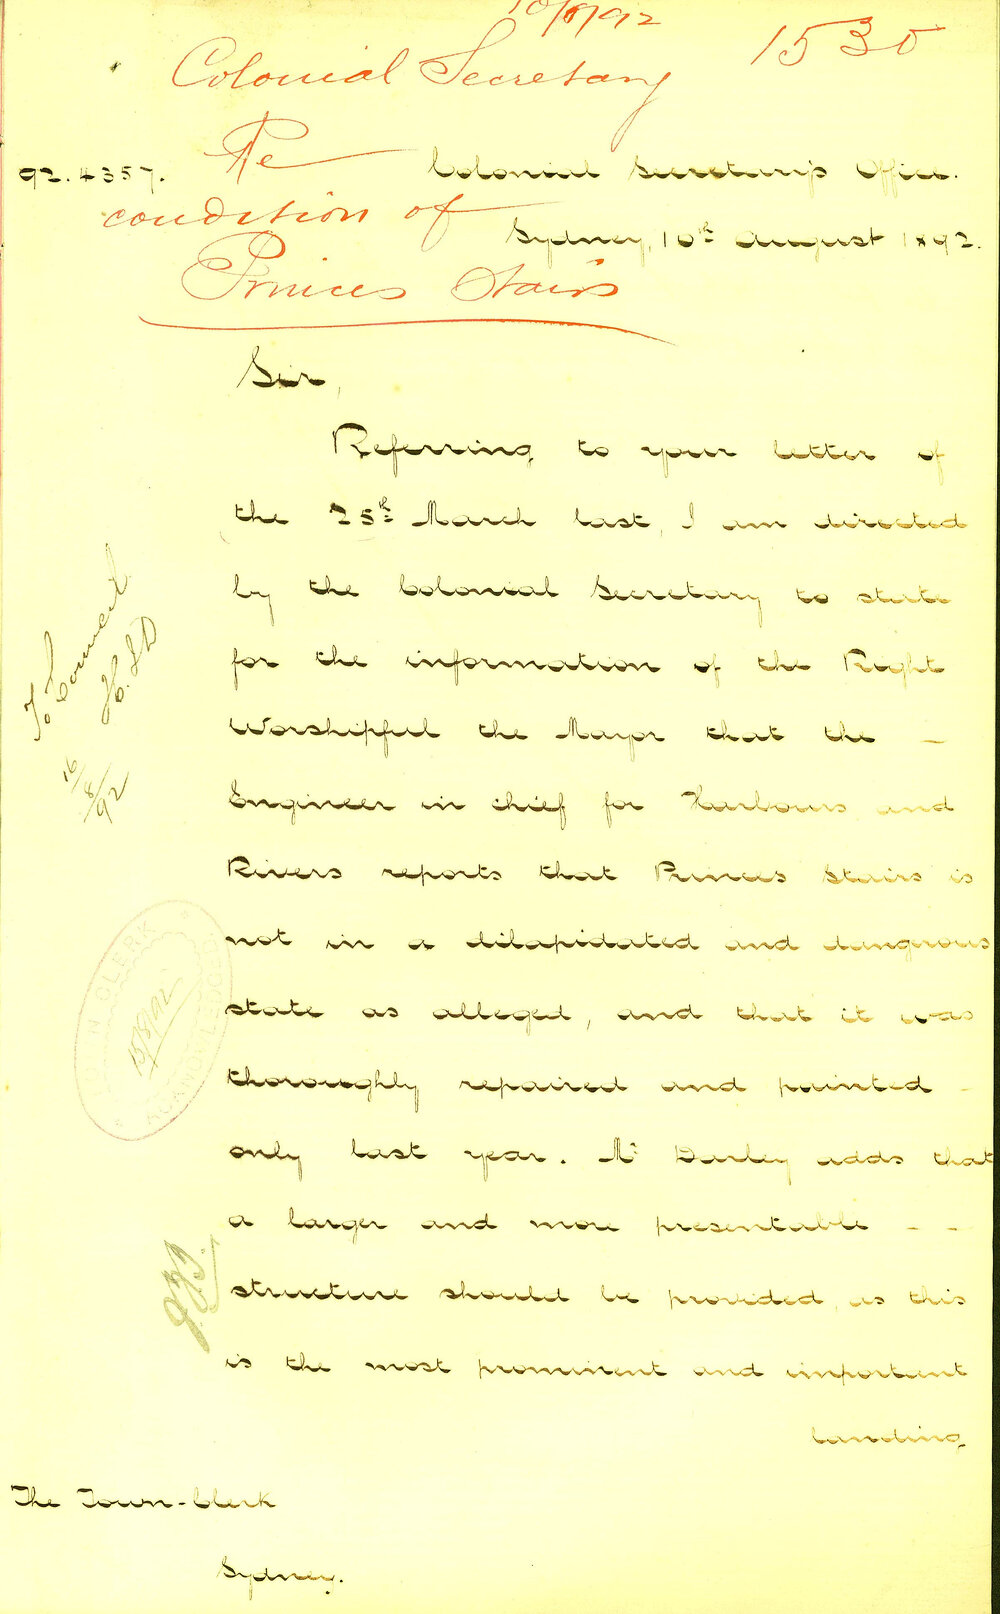 10/8/92
1530
Colonial Secretary
Re
condition of
Princes Stairs
92.4357.
Colonial Secretary's Office.
Sydney, 10th August 1892.
Sir,
Referring to your letter of
the 25th March last, I am directed
by the Colonial Secretary to state
for the information of the Right
Worshipful the Mayor that the –
Engineer in chief for Harbours and
Rivers reports that Princes Stairs is
not in a dilapidated and dangerous
state as alleged, and that it was
thoroughly repaired and painted –
only last year. Mr Darley adds that
a larger and more presentable – –
structure should be provided, as this
is the most prominent and important
landing
To Council
16/8/92
TOWN CLERK
15/8/92
ACKNOWLEDGED
The Town-Clerk
Sydney.